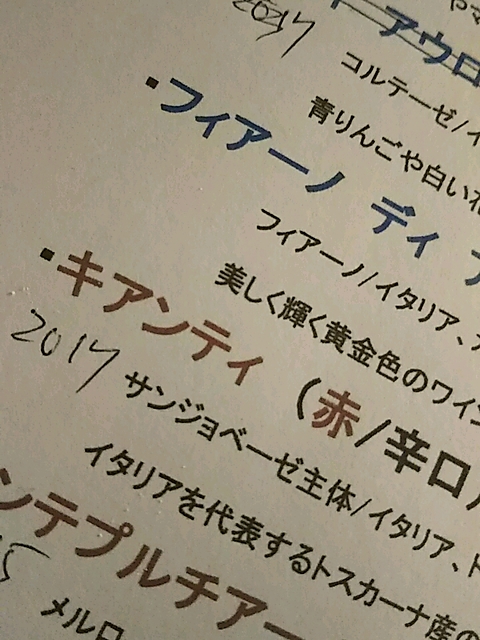 2017
アウロ
コルテーゼ/イ
青りんごや白い花
▪フィアーノ ディ ア
フィアーノ/イタリア、
美しく輝く黄金色のワイン
▪キアンティ (赤/辛口)
2017
サンジョベーゼ主体/イタリア、ト
イタリアを代表するトスカーナ産の
ンテプルチアー
メルロ